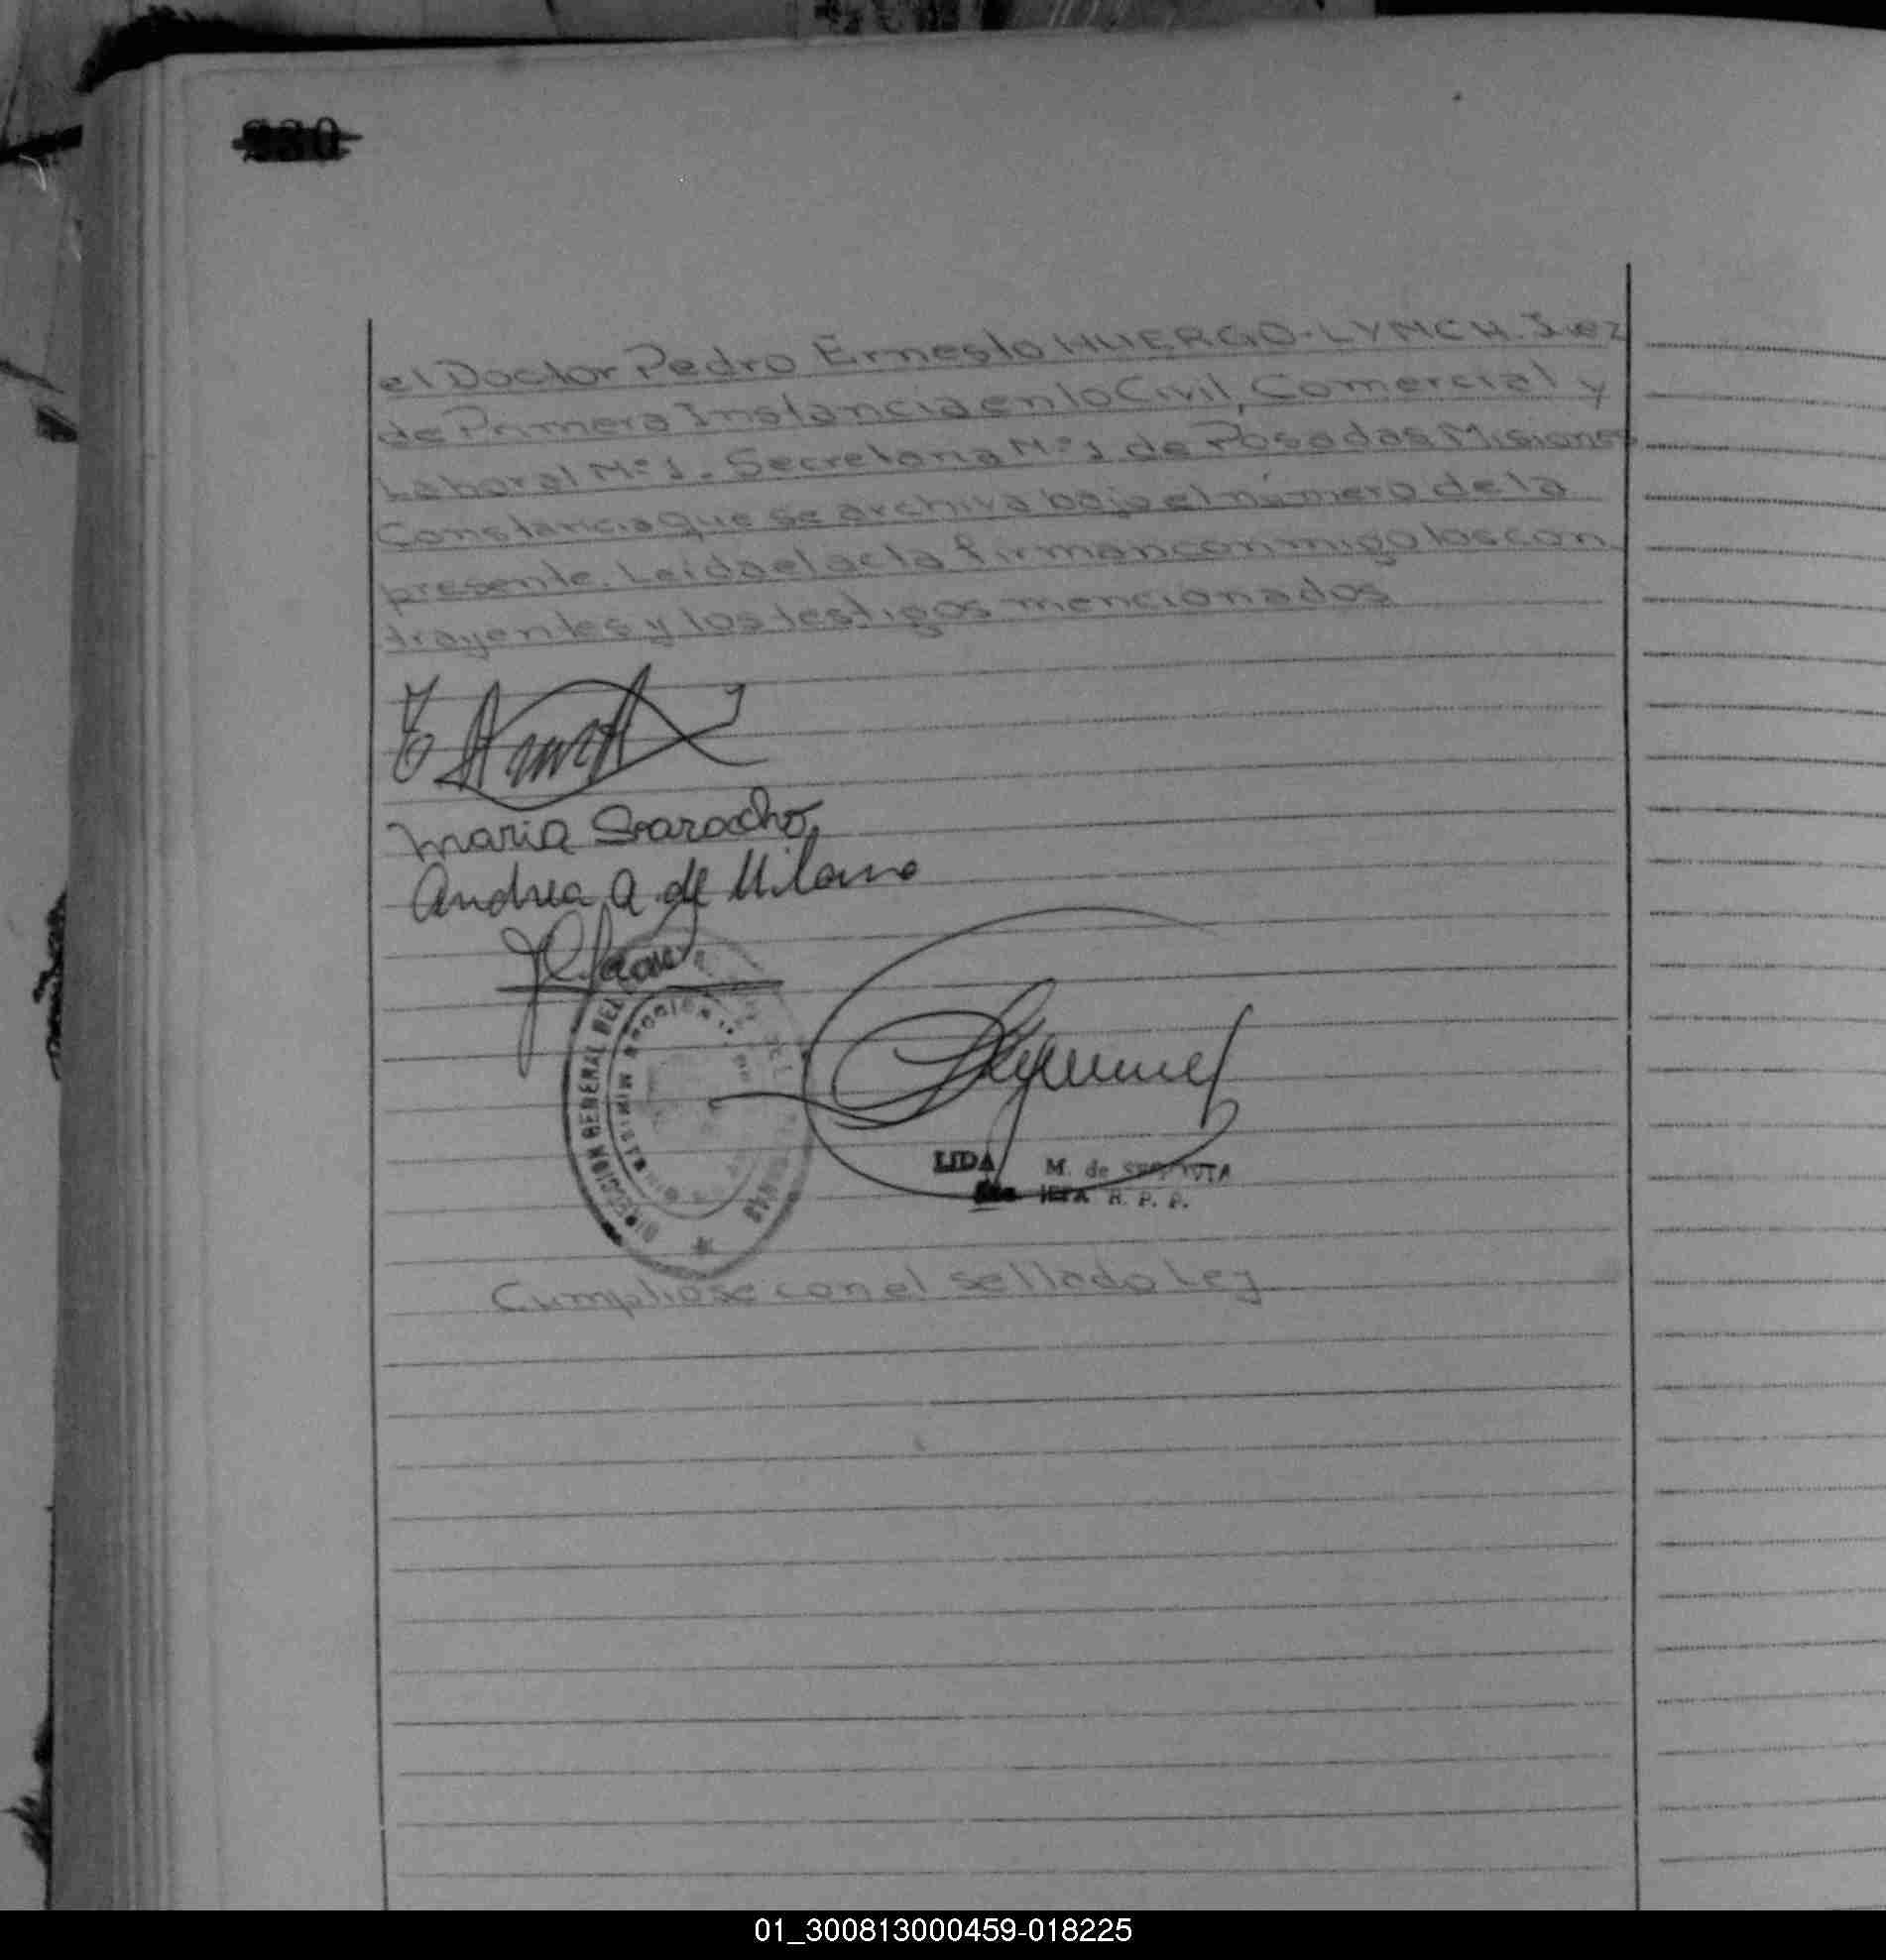 330
el Doctor Pedro Ernesto HUERGO-LYNCH. Juez
de Primera Instancia en lo Civil, Comercial y
Laboral Nº 1. Secretaria Nº 1 de Posadas Misiones
Constancia que se archiva bajo el número de la
presente. Leida el acta firman conmigo los con
trayentes y los testigos mencionados
Maria Saracho
Andrea A de Milano
DIRECCION GENERAL DEL
LIDA M. de
JEFA R. P. P.
Cumpliose con el sellado Ley
01_300813000459-018225